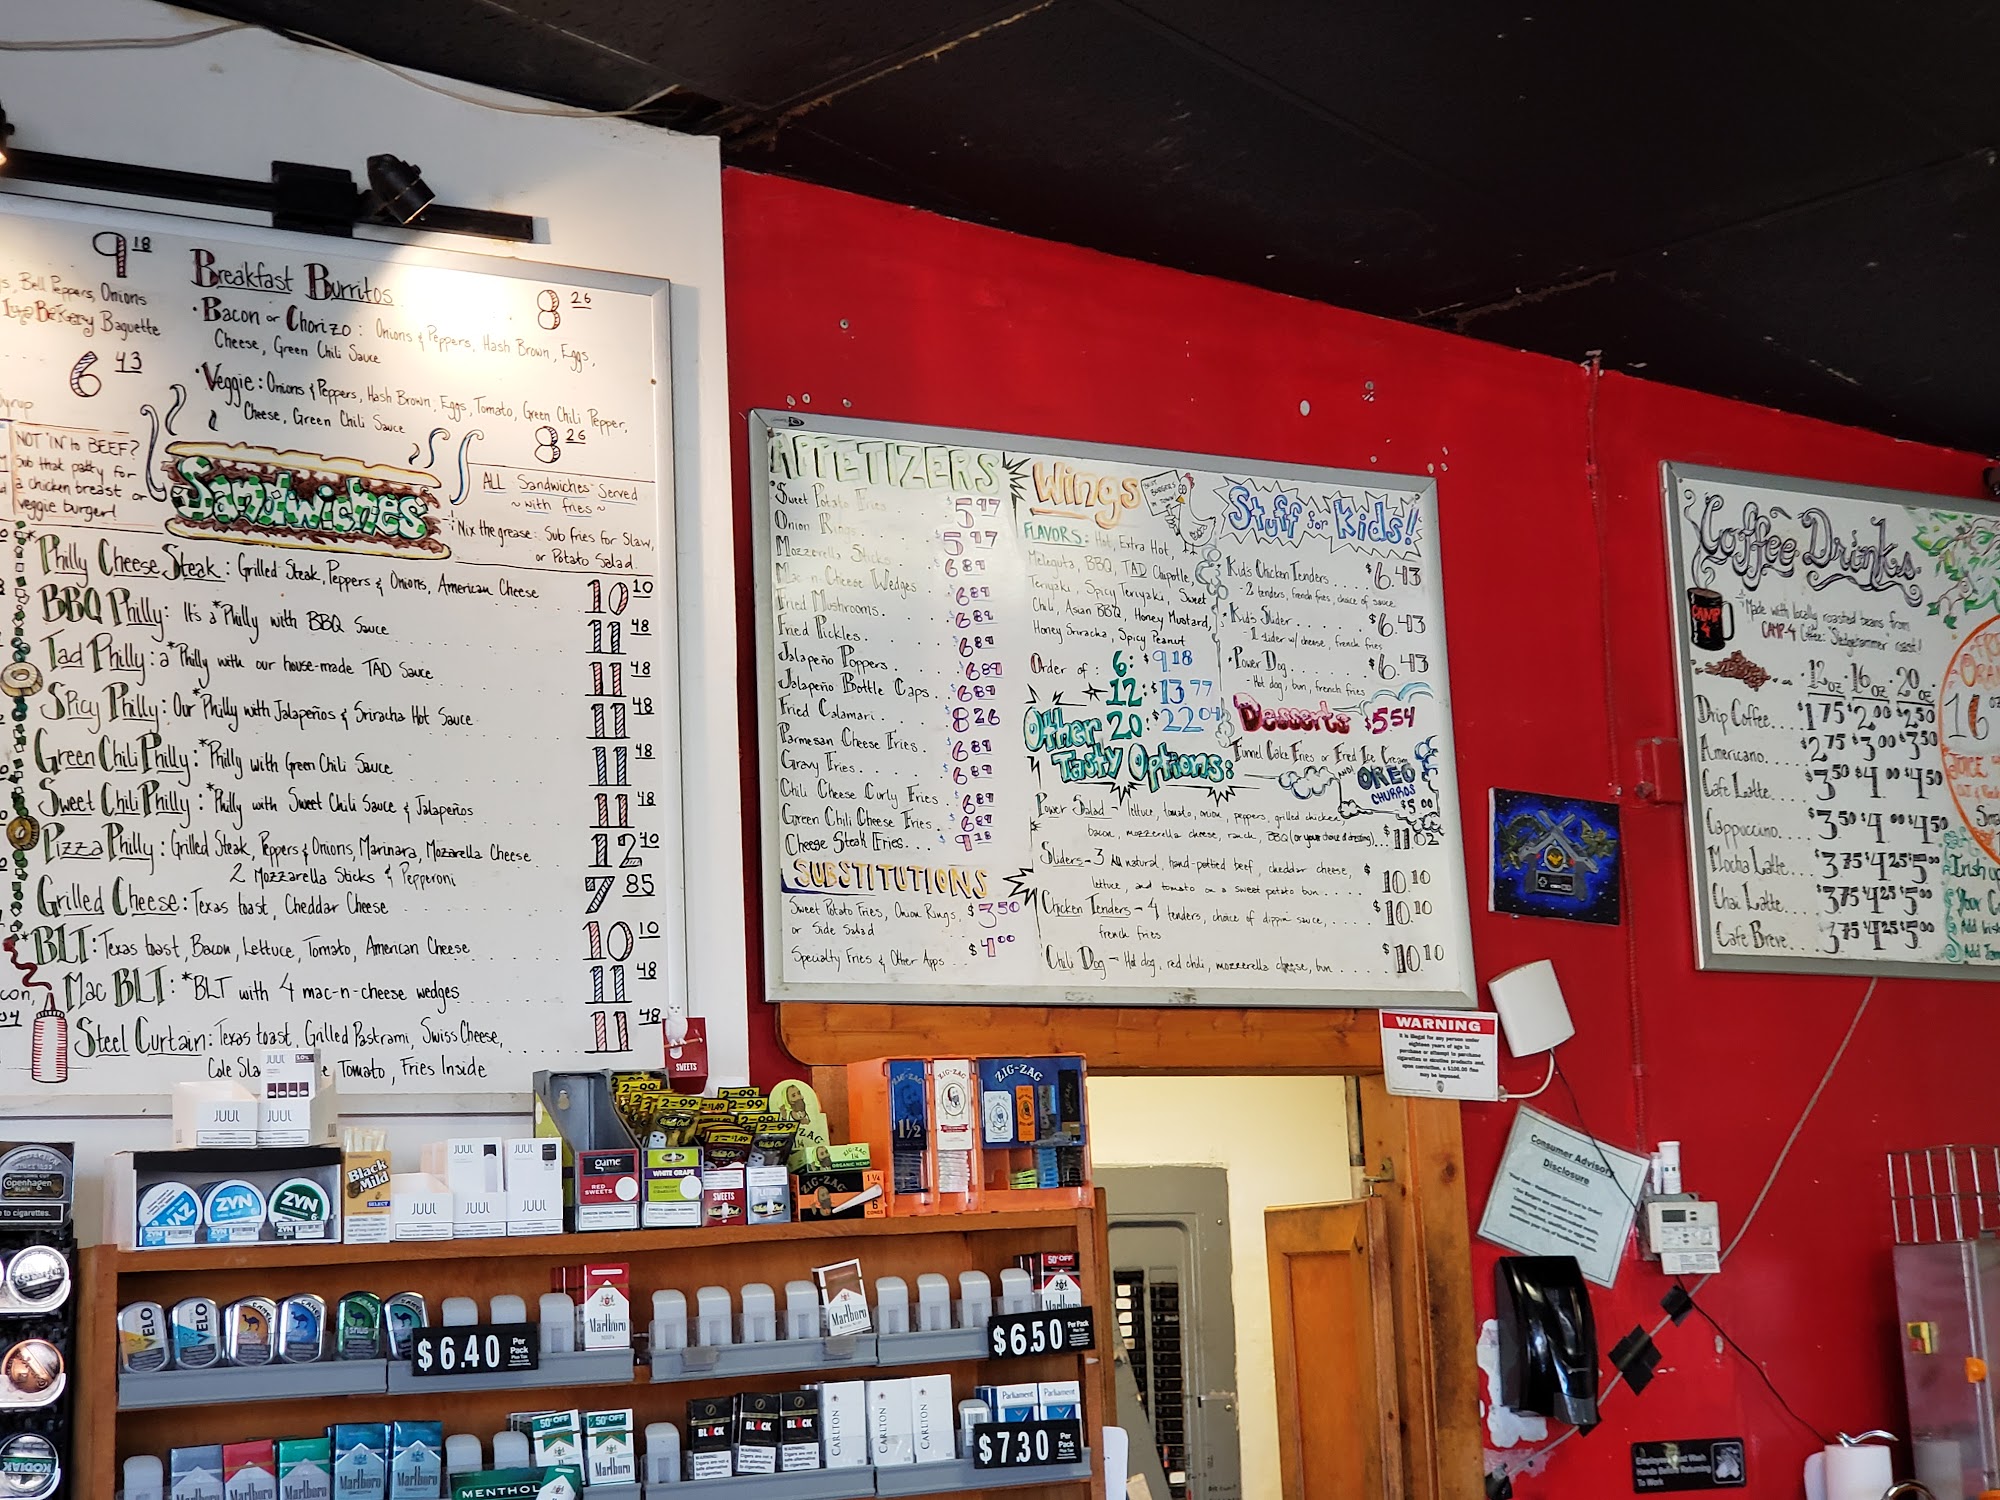 9 18
Bell Peppers, Onions
Baguette
6 43
Syrup
NOT IN to BEEF?
Sub that patty for
a chicken breast or
veggie burger!
Breakfast Burritos
• Bacon or Chorizo: Onions & Peppers, Hash Brown, Eggs, 8 26
Cheese, Green Chili Sauce
• Veggie: Onions & Peppers, Hash Brown, Eggs, Tomato, Green Chili Pepper,
Cheese, Green Chili Sauce 8 26
Sandwiches
ALL Sandwiches Served
~ with fries ~
Nix the grease: Sub fries for Slaw,
or Potato Salad.
*Philly Cheese Steak: Grilled Steak, Peppers & Onions, American Cheese 10 10
BBQ Philly: It's a *Philly with BBQ Sauce 11 48
Tad Philly: a *Philly with our house-made TAD Sauce 11 48
Spicy Philly: Our *Philly with Jalapeños & Sriracha Hot Sauce 11 48
Green Chili Philly: *Philly with Green Chili Sauce 11 48
Sweet Chili Philly: *Philly with Sweet Chili Sauce & Jalapeños 11 48
Pizza Philly: Grilled Steak, Peppers & Onions, Marinara, Mozarella Cheese 12 40
2 Mozzarella Sticks & Pepperoni
Grilled Cheese: Texas toast, Cheddar Cheese 7 85
*BLT: Texas toast, Bacon, Lettuce, Tomato, American Cheese 10 10
Mac BLT: *BLT with 4 mac-n-cheese wedges 11 48
Steel Curtain: Texas toast, Grilled Pastrami, Swiss Cheese, 11 48
Cole Sla Tomato, Fries Inside
APPETIZERS
Sweet Potato Fries $5 97
Onion Rings $5 97
Mozzerella Sticks $6 89
Mac-n-Cheese Wedges $6 89
Fried Mushrooms. $6 89
Fried Pickles. $6 89
Jalapeño Poppers $6 89
Jalapeño Bottle Caps $6 89
Fried Calamari $8 26
Parmesan Cheese Fries. $6 89
Gravy Fries $6 89
Chili Cheese Curly Fries $6 89
Green Chili Cheese Fries. $6 89
Cheese Steak Fries. $9 18
SUBSTITUTIONS
Sweet Potato Fries, Onion Rings, $3 50
or Side Salad
Specialty Fries & Other Apps $4 00
Wings
FLAVORS: Hot, Extra Hot,
Meleguta, BBQ, TAD Chipotle,
Teriyaki, Spicy Teriyaki, Sweet
Chili, Asian BBQ, Honey Mustard,
Honey Sriracha, Spicy Peanut
Order of: 6: $9 18
12: $13 77
20: $22 04
Stuff for Kids!
• Kid's Chicken Tenders $6.43
- 2 tenders, french fries, choice of sauce
• Kid's Slider $6.43
- 1 slider w/ cheese, french fries
• Power Dog $6.43
- Hot dog, bun, french fries
Desserts $5.54
Funnel Cake Fries or Fried Ice Cream
AND!
OREO
CHURROS
$5.00
Other
Tasty Options:
Power Salad - lettuce, tomato, onion, peppers, grilled chicken,
bacon, mozzerella cheese, ranch, BBQ (or your choice of dressing) $11.02
Sliders - 3 All natural, hand-patted beef, cheddar cheese, $10.10
lettuce, and tomato on a sweet potato bun
Chicken Tenders - 4 tenders, choice of dippin' sauce, $10.10
french fries
Chili Dog - Hot dog, red chili, mozzerella cheese, bun $10.10
Coffee Drinks
CAMP 4
Made with locally roasted beans from
CAMP-4 Coffee: "Sledgehammer" roast!
12 oz 16 oz 20 oz
Drip Coffee $1 75 $2 00 $2 50
Americano $2 75 $3 00 $3 50
Cafe Latte $3 50 $4 00 $4 50
Cappuccino $3 50 $4 00 $4 50
Mocha Latte $3 75 $4 25 $5 00
Chai Latte $3 75 $4 25 $5 00
Cafe Breve $3 75 $4 25 $5 00
16
WARNING
It is illegal for any person under
eighteen years of age to
purchase or attempt to purchase
cigarettes or nicotine products and,
upon conviction, a $100.00 fine
may be imposed.
Consumer Advisory
Disclosure
Employees Must Wash
Hands Before Returning
To Work
SWEETS
JUUL
JUUL
JUUL
JUUL
JUUL
JUUL
Copenhagen
ZYN
ZYN
ZYN
Black
& Mild
SELECT
game
RED
SWEETS
WHITE GRAPE
SWEETS
2 for 99¢
ZIG-ZAG
ZIG-ZAG
ZIG-ZAG
1½
ZIG-ZAG
ORGANIC HEMP
1 ¼
6
CONES
VELO
VELO
CAMEL
CAMEL
$6.40 Per Pack
Marlboro
Marlboro
50¢ OFF
Marlboro
$6.50 Per Pack
KODIAK
Marlboro
Marlboro
50¢ OFF
50¢ OFF
Marlboro
MENTHOL
BLACK
BLACK
BLACK
CARLTON
CARLTON
CARLTON
Parliament
Parliament
$7.30 Per Pack